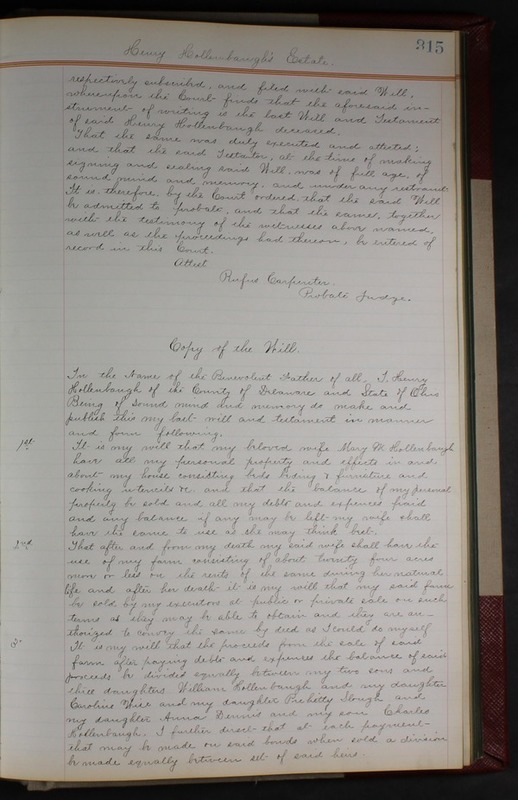 315
Henry Hollenbaugh's Estate.
respectively subscribed, and filed with said Will,
wherefrom the Court finds that the aforesaid in-
strument of writing is the last Will and Testament
of said Henry Hollenbaugh deceased.
That the same was duly executed and attested;
and that the said Testator, at the time of making
signing and sealing said Will, was of full age, of
sound mind and memory, and under any restraint
It is therefore, by the Court ordered that the said Will
be admitted to probate, and that the same, together
with the testimony of the witnesses above named,
as well as the proceedings had thereon, be entered of
record in this Court.
Attest
Rufus Carpenter
Probate Judge.
Copy of the Will.
In the Name of the Benevolent Father of all, I, Henry
Hollenbaugh of the County of Delaware and State of Ohio
Being of sound mind and memory do make and
publish this my last will and testament in manner
and form following.
1st It is my will that my beloved wife Mary M. Hollenbaugh
have all my personal property and effects in and
about my house consisting beds beding & furniture and
cooking utencils &c. and that the balance of my personal
property be sold and all my debts and expences paid
and any balance if any may be left my wife shall
have the same to use as she may think best.
2nd That after and from my death my said wife shall have the
use of my farm consisting of about twenty four acres
more or less on the rents of the same during her natural
life and after her death it is my will that my said farm
be sold by my executors at public or private sale on such
terms as they may be able to obtain and they are au-
thorized to convey the same by deed as I could do myself
3" It is my will that the proceeds from the sale of said
farm after paying debts and expences the balance of said
proceeds be divided equally between my two sons and
three daughters William Hollenbaugh and my daughter
Caroline and my daughter Slough and
my daughter Anna Dennis and my son Charles
Hollenbaugh. I further direct that at each payment
that may be made on said bonds when sold a division
be made equally between sd. of said heirs.